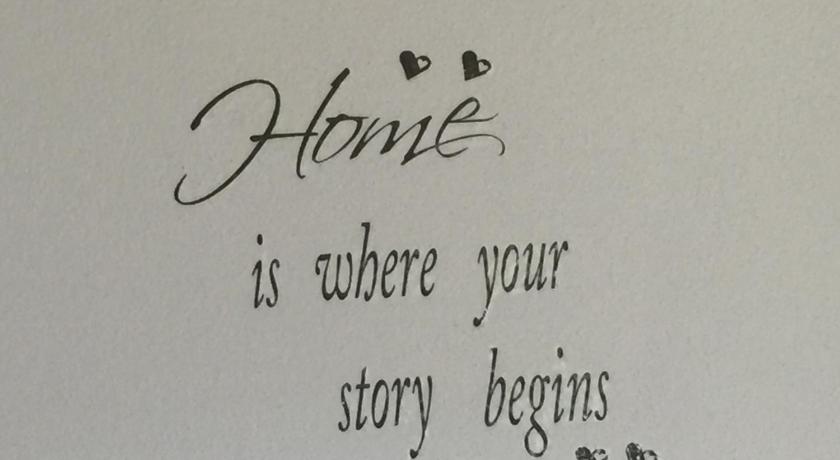 Home
is where your
story begins